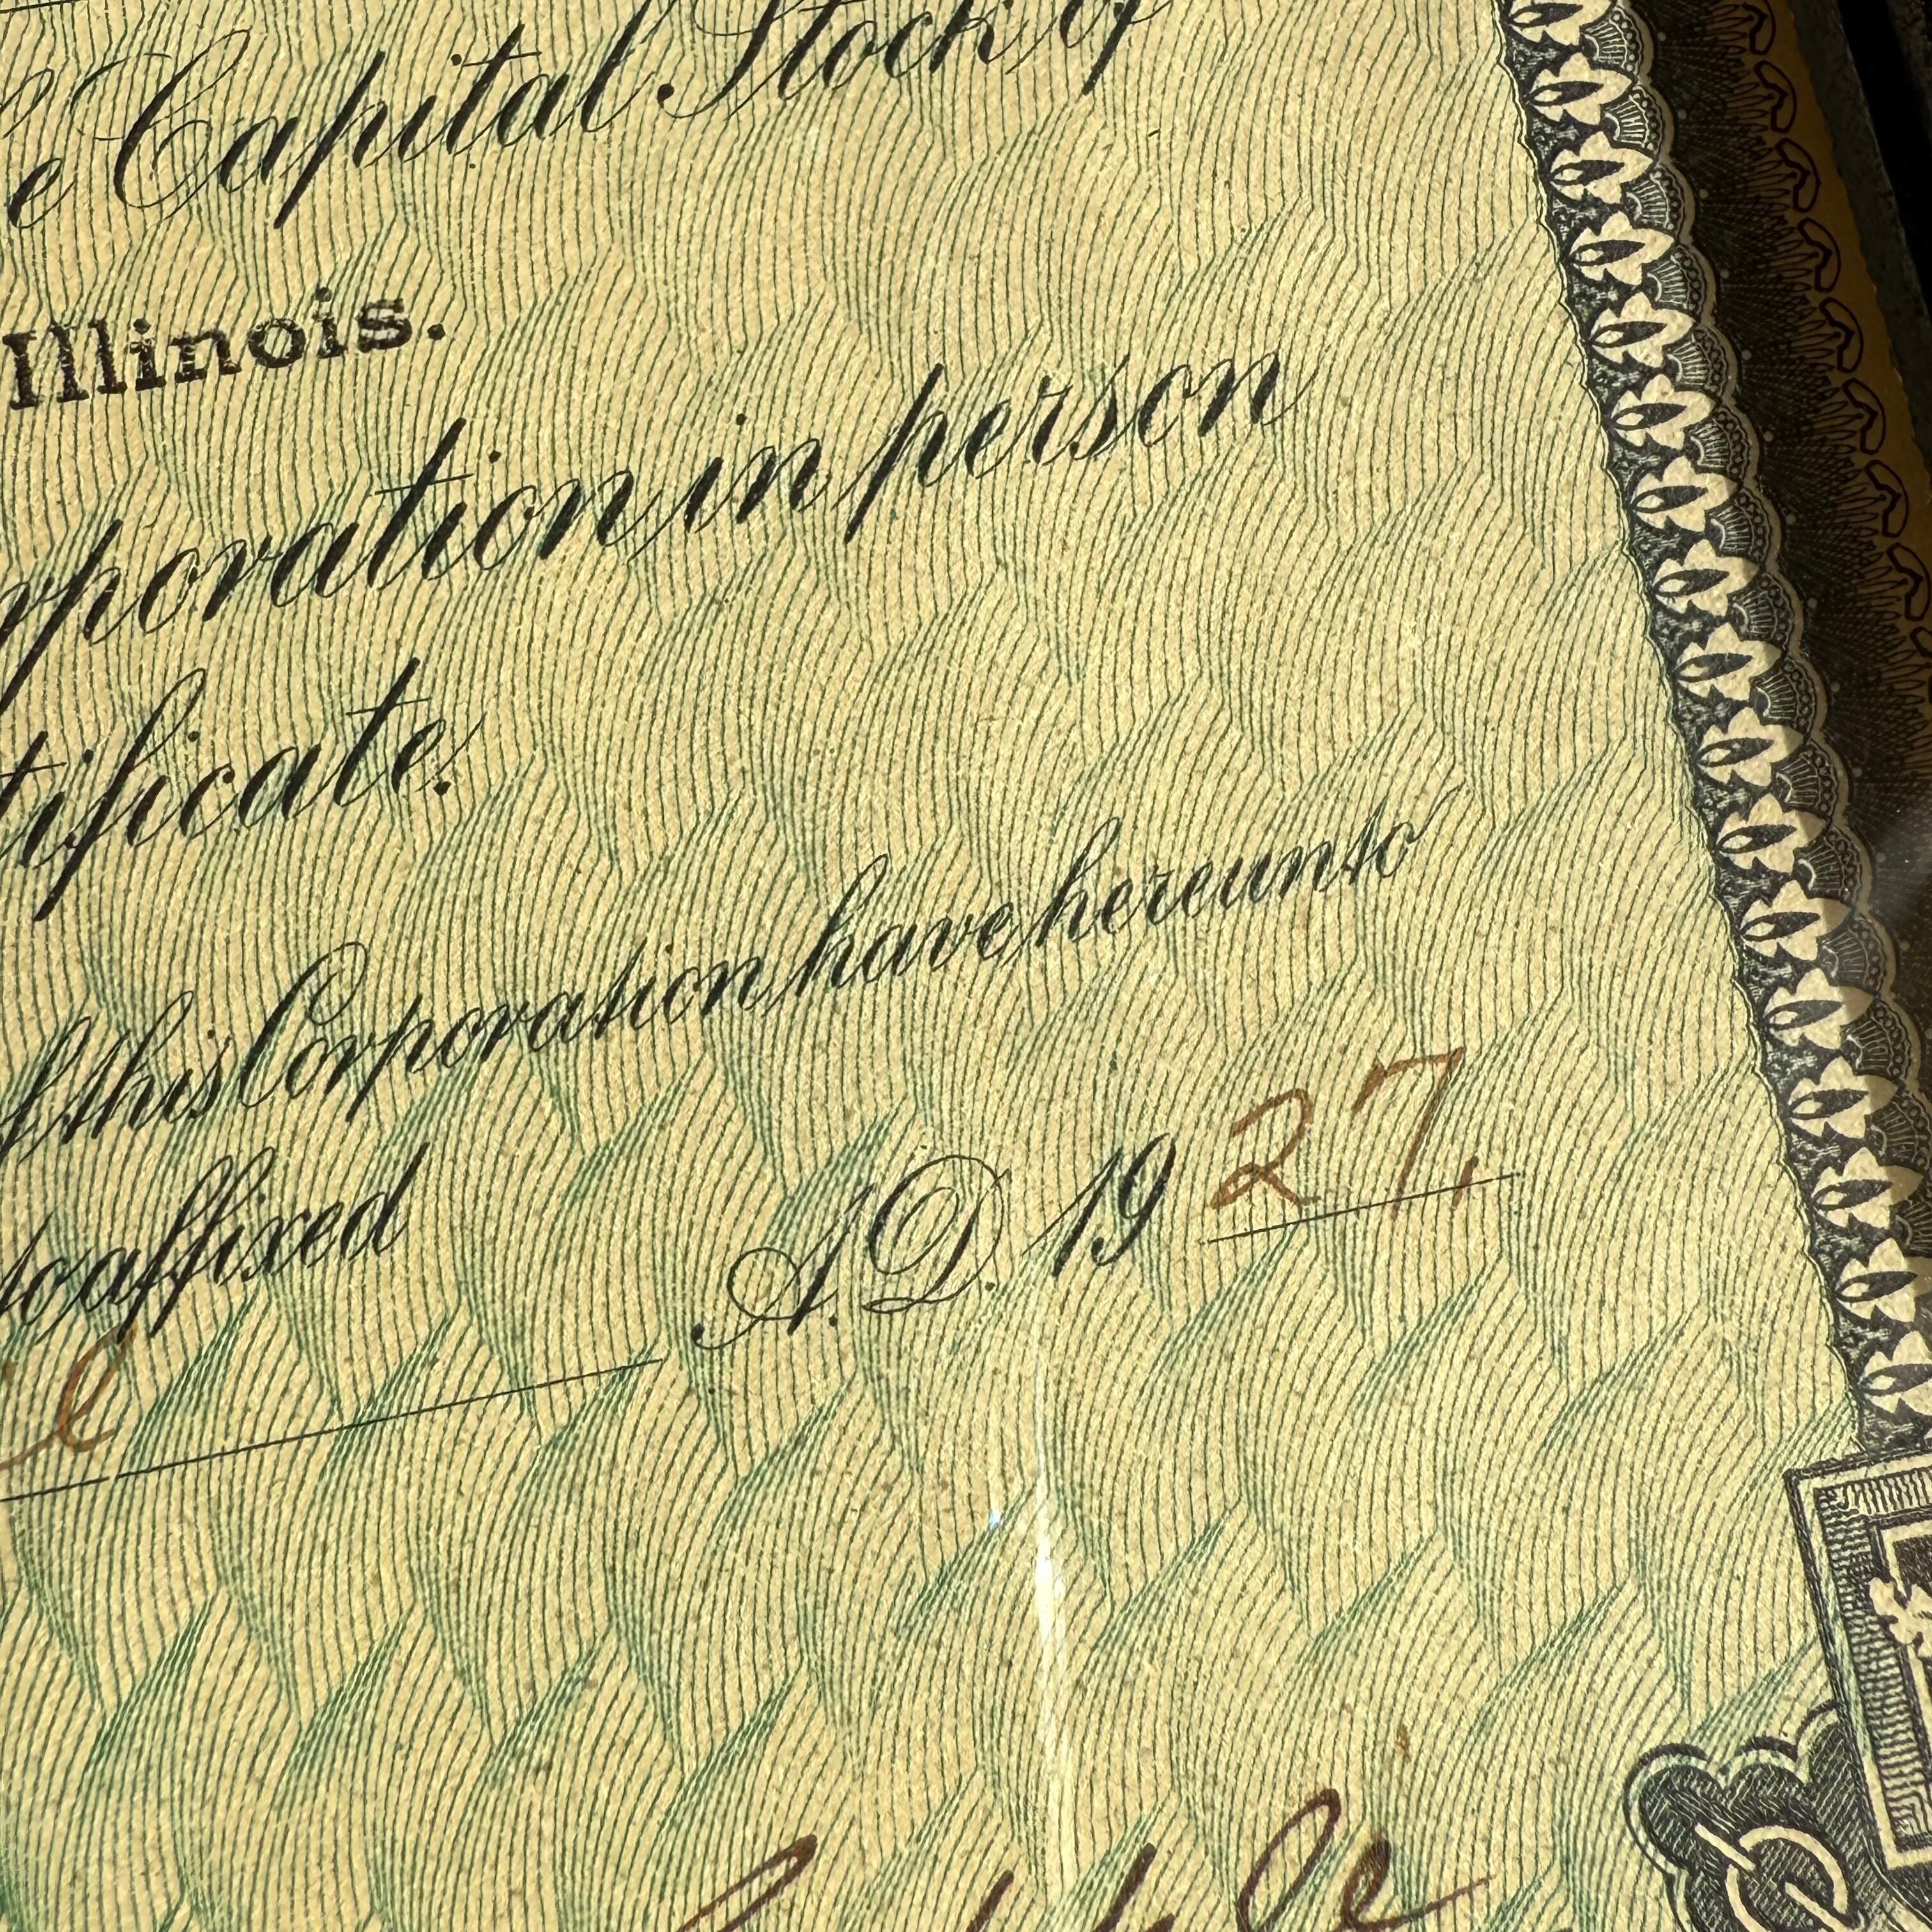 e Capital Stock of
Illinois.
rporation in person
tificate.
f this Corporation have hereunto
to affixed
A.D. 19 27.